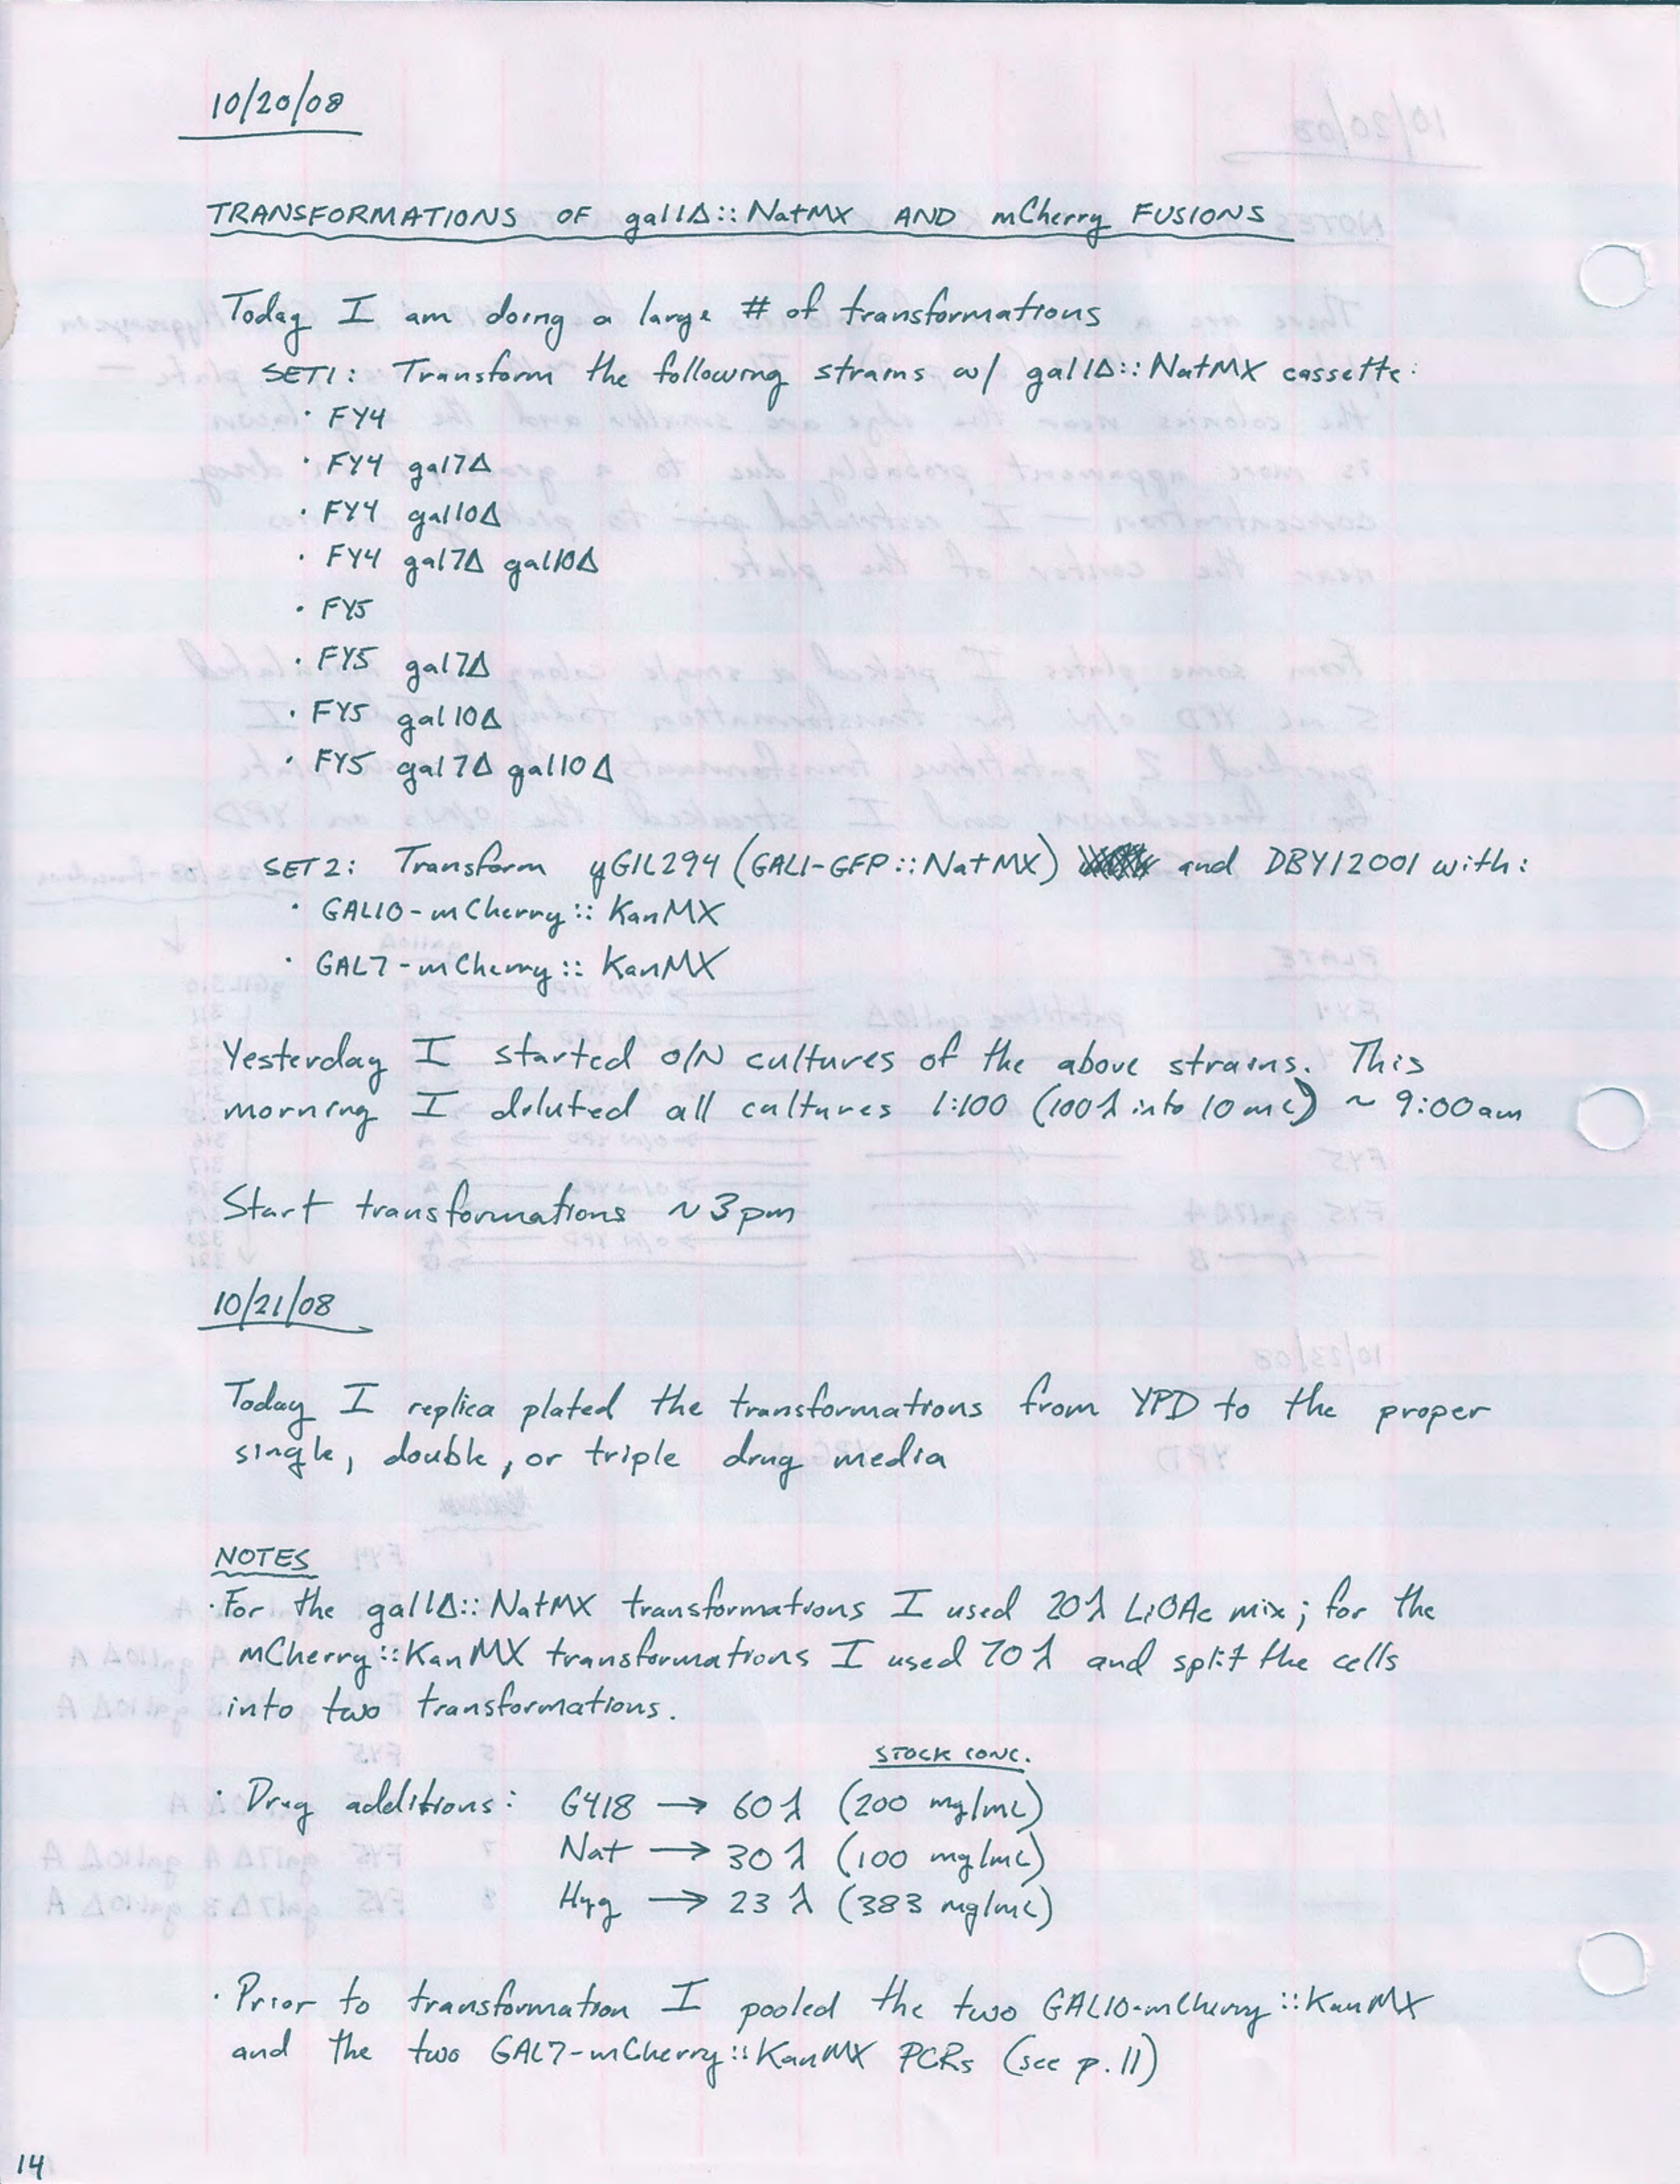 10/20/08
TRANSFORMATIONS OF gal1Δ::NatMX AND mCherry FUSIONS
Today I am doing a large # of transformations
SET1: Transform the following strains w/ gal1Δ::NatMX cassette:
· FY4
· FY4 gal7Δ
· FY4 gal10Δ
· FY4 gal7Δ gal10Δ
· FY5
· FY5 gal7Δ
· FY5 gal10Δ
· FY5 gal7Δ gal10Δ
SET2: Transform yGIL294 (GAL1-GFP::NatMX) and DBY12001 with:
· GAL10-mCherry::KanMX
· GAL7-mCherry::KanMX
Yesterday I started O/N cultures of the above strains. This
morning I diluted all cultures 1:100 (100λ into 10mL) ~ 9:00am
Start transformations ~3pm
10/21/08
Today I replica plated the transformations from YPD to the proper
single, double, or triple drug media
NOTES
· For the gal1Δ::NatMX transformations I used 20λ LiOAc mix; for the
mCherry::KanMX transformations I used 70λ and split the cells
into two transformations.
STOCK CONC.
· Drug additions: G418 → 60λ (200 mg/mL)
Nat → 30λ (100 mg/mL)
Hyg → 23λ (383 mg/mL)
· Prior to transformation I pooled the two GAL10-mCherry::KanMX
and the two GAL7-mCherry::KanMX PCRs (see p.11)
14